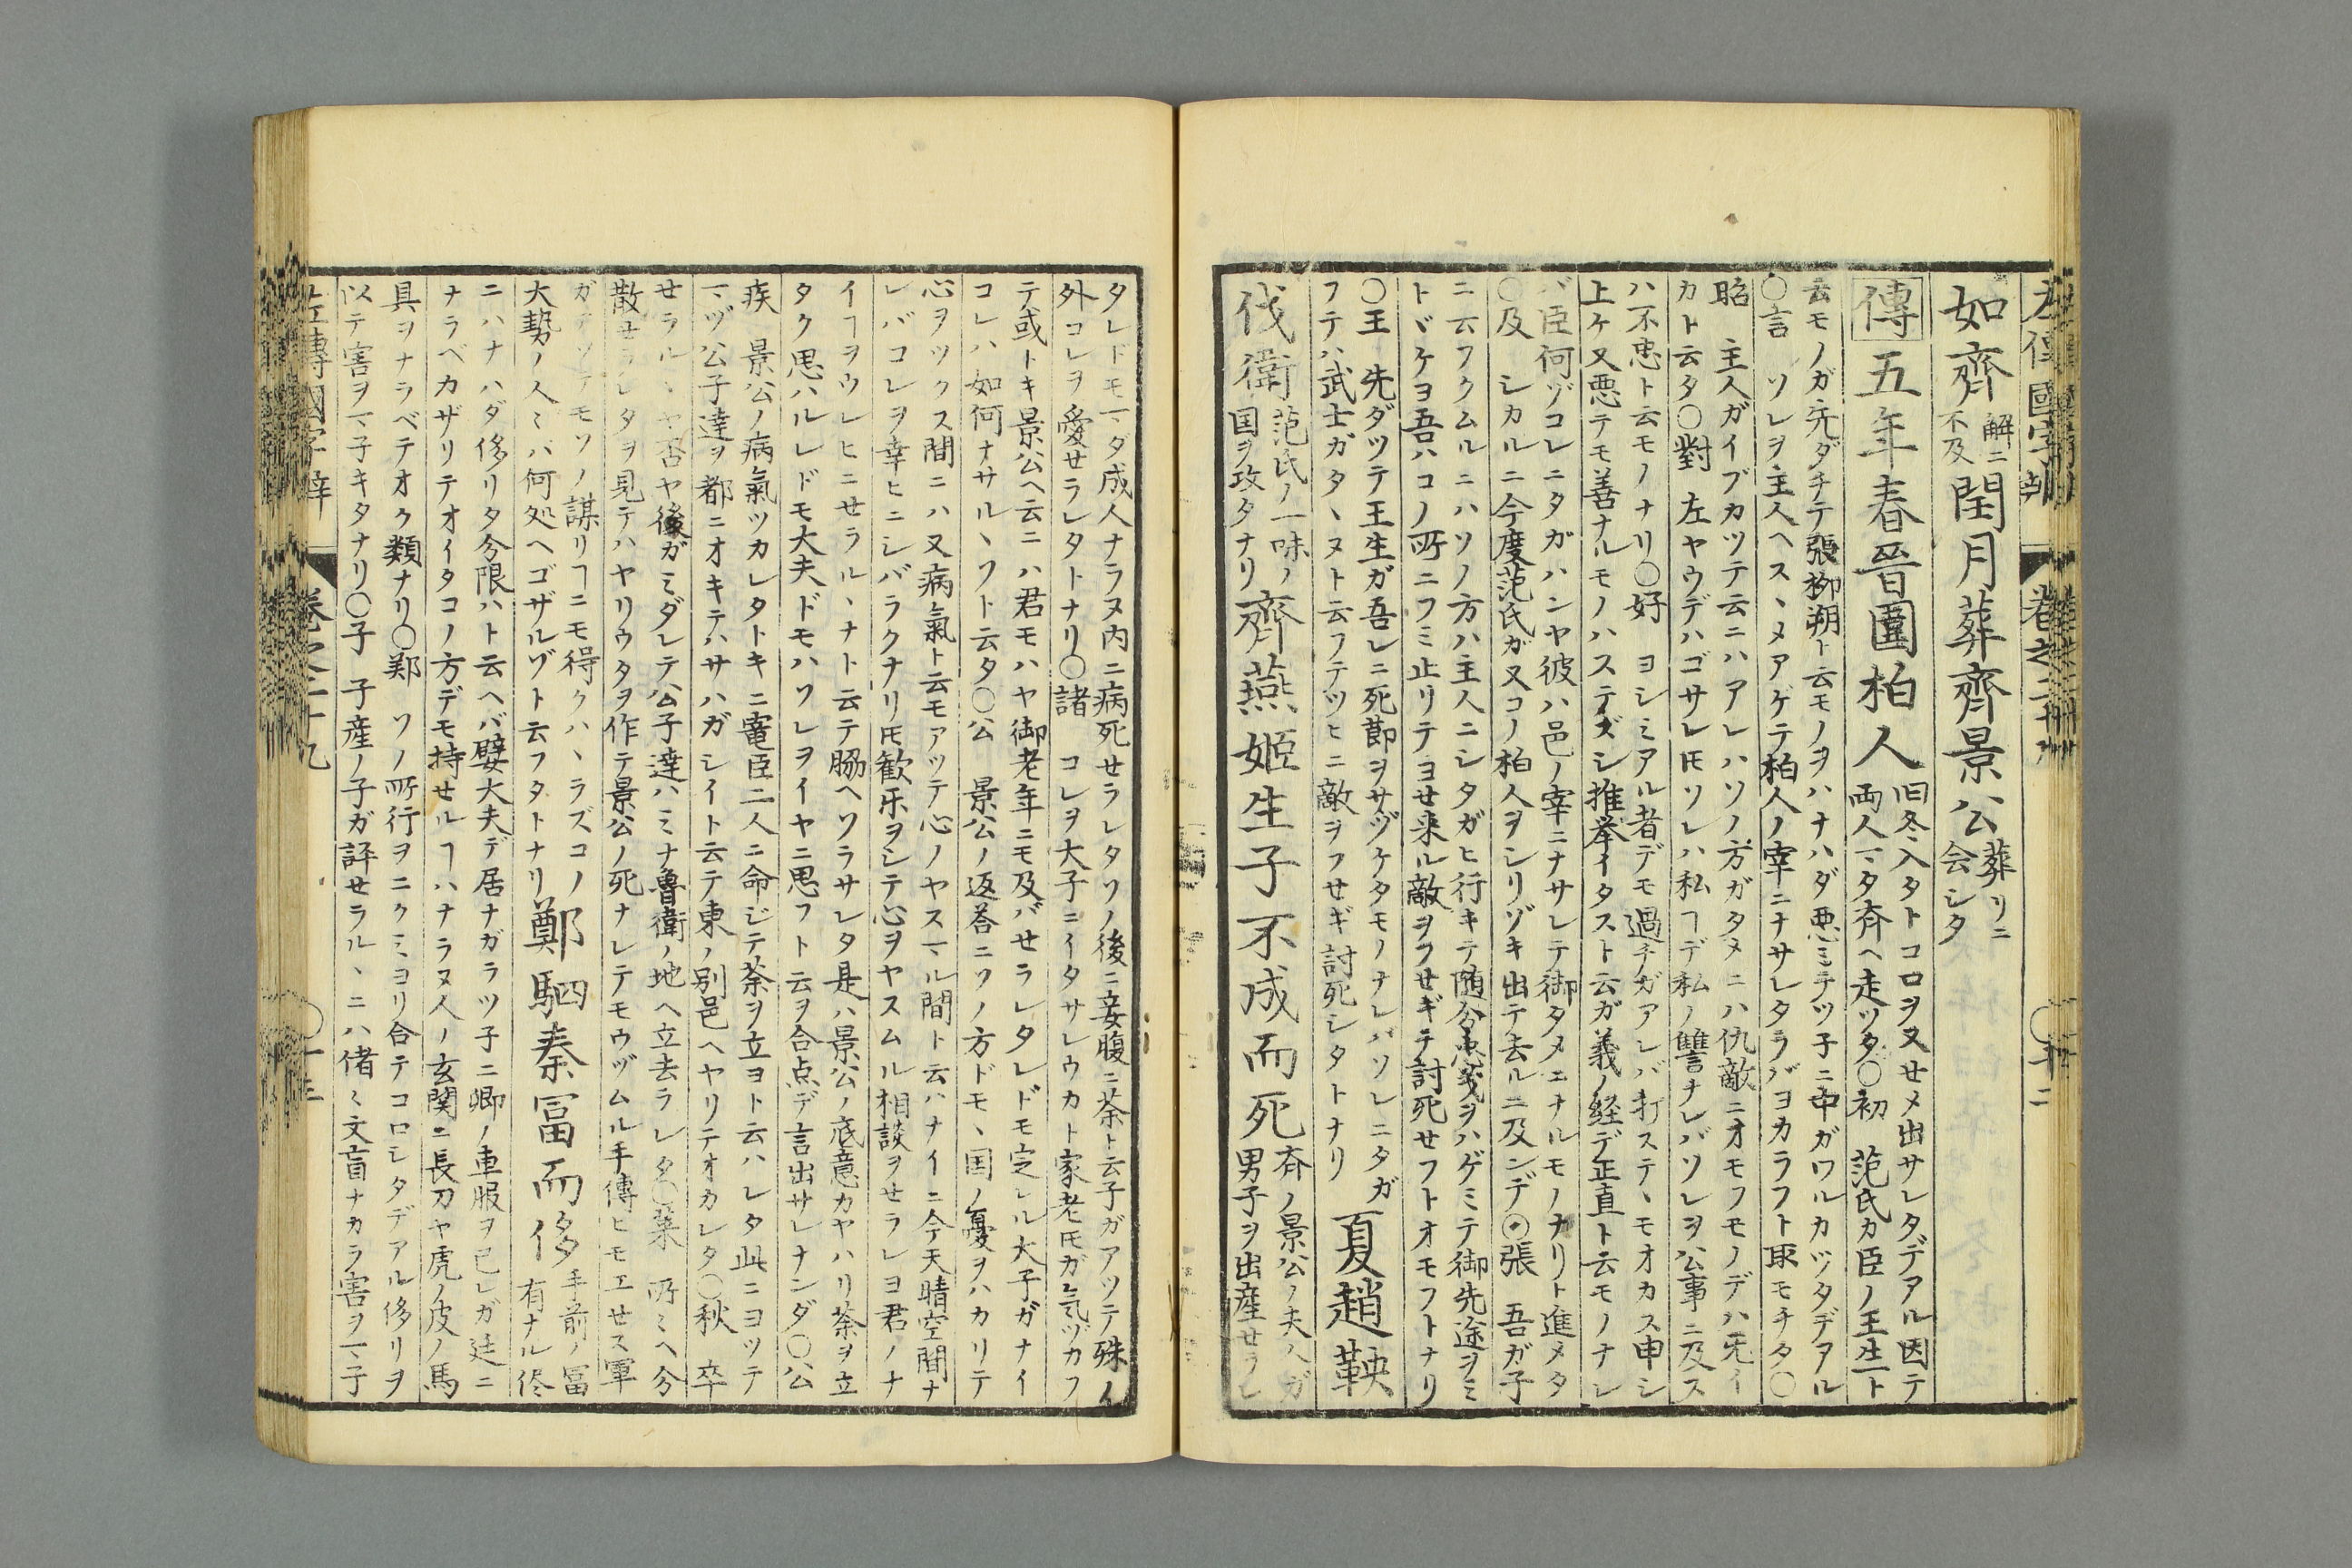 左傳國字辯　卷之二十九　〇十二
如齊解ニ不及閏月葬齊景公葬リニ会シタ
傳五年春晉圍柏人旧冬入タトコロヲ又せメ出サレタデアル因テ
両人マタ斉ヘ走ツタ〇初　范氏カ臣ノ王生ト
云モノガ先ダチテ張柳朔ト云モノヲハナハダ悪ミテツ子ニ中ガワルカツタデアル
〇言　ソレヲ主人ヘスヽメアゲテ柏人ノ宰ニナサレタラバヨカラフト取モチタ〇
昭　主人ガイブカツテ云ニハアレハソノ方ガタメニハ仇敵ニオモフモノデハ旡イ
カト云タ〇對　左ヤウデハゴサレ𪜈ソレハ私ヿデ私ノ讐ナレバソレヲ公事ニ及ス
ハ不忠ト云モノナリ〇好　ヨシミアル者デモ過チガアレバ打ステヽモオカス申シ
上ケ又悪テモ善ナルモノハステズシ推挙イタスト云ガ義ノ経デ正直ト云モノナレ
バ臣何ゾコレニタガハンヤ彼ハ邑ノ宰ニナサレテ御タメニナルモノナリト進メタ
〇及　シカルニ今度范氏ガ又コノ柏人ヲシリゾキ出テ去ルニ及ンデ〇張　吾ガ子
ニ云フクムルニハソノ方ハ主人ニシタガヒ行キテ随分忠義ヲハゲミテ御先途ヲミ
トヾケヨ吾ハコノ所ニフミ止リテヨせ来ル敵ヲフせギテ討死せフトオモフトナリ
〇王　先ダツテ王生ガ吾レニ死節ヲサヅケタモノナレバソレニタガ
フテハ武士ガタヽヌト云フテツヒニ敵ヲフせギ討死シタトナリ夏趙鞅
伐衛范氏ノ一味ノ国ヲ攻タナリ齊燕姫生子不成而死斉ノ景公ノ夫人ガ
男子ヲ出産せラレ
タレドモマタ成人ナラヌ内ニ病死せラレタソノ後ニ妾腹ニ荼ト云子ガアツテ殊イ
外コレヲ愛せラレタトナリ〇諸　コレヲ大子ニイタサレウカト家老𪜈ガ気ヅカフ
テ或トキ景公ヘ云ニハ君モハヤ御老年ニモ及バせラレタレドモ定レル大子ガナイ
コレハ如何ナサルヽソト云タ〇公　景公ノ返荅ニソノ方ドモヽ国ノ憂ヲハカリテ
心ヲツクス間ニハ又病氣ト云モアツテ心ノヤスマル間ト云ハナイニ今天晴空間ナ
レバコレヲ幸ヒニシバラクナリ𪜈歓乐ヲシテ心ヲヤスムル相談ヲせラレヨ君ノナ
イヿヲウレヒニせラルヽナト云テ脇ヘソラサレタ是ハ景公ノ底意カヤハリ荼ヲ立
タク思ハルレドモ大夫ドモハソレヲイヤニ思フト云ヲ合点デ言出サレナンダ〇公
疾　景公ノ病氣ツカレタトキニ寵臣二人ニ命ジテ荼ヲ立ヨト云ハレタ此ニヨツテ
マヅ公子達ヲ都ニオキテハサハガシイト云テ東ノ別邑ヘヤリテオカレタ〇秋　卒
せラルヽヤ否ヤ後ガミダレテ公子達ハミナ魯衛ノ地ヘ立去ラレタ〇莱　所ミヘ分
散せラレタヲ見テハヤリウタヲ作テ景公ノ死ナレテモウヅムル手傳ヒモエせス軍
ガアツテモソノ謀リヿニモ得クハヽラズコノ
大勢ノ人ミハ何処ヘゴザルゾト云フタトナリ鄭駟秦冨而侈手前ノ冨
有ナル侭
ニハナハダ侈リタ分限ハト云ヘバ嬖大夫デ居ナガラツ子ニ卿ノ車服ヲ己レガ廷ニ
ナラベカザリテオイタコノ方デモ持せルヿハナラヌ人ノ玄関ニ長刀ヤ虎ノ皮ノ馬
具ヲナラベテオク類ナリ〇鄭　ソノ所行ヲニクミヨリ合テコロシタデアル侈リヲ
以テ害ヲマ子キタナリ〇子　子産ノ子ガ評せラルヽニハ偖ミ文盲ナカラ害ヲマ子
左傳國字辯　卷之二十九　〇十三